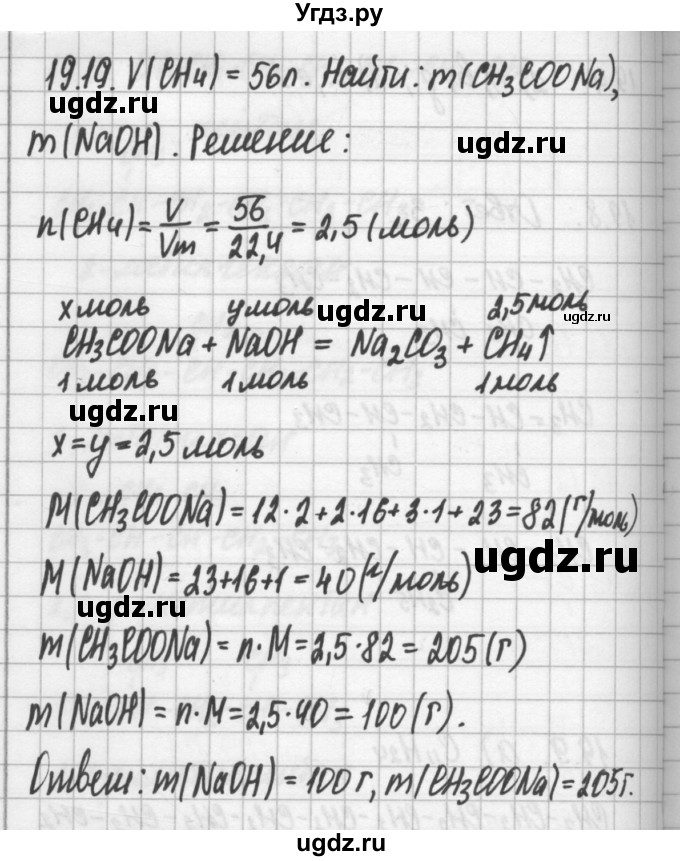 Угдз.ру
19.19. V(CH4) = 56л. Найти: m(CH3COONa),
ugdz.ru
ugdz.ru
m(NaOH). Решение:
n(CH4) = V/Vm = 56/22,4 = 2,5 (моль)
x моль y моль 2,5 моль
ugdz.ru
CH3COONa + NaOH = Na2CO3 + CH4↑
1 моль 1 моль 1 моль
ugdz.ru
x = y = 2,5 моль
M(CH3COONa) = 12·2+2·16+3·1+23=82(г/моль)
ugdz.ru
M(NaOH) = 23+16+1 = 40(г/моль)
ugdz.ru
m(CH3COONa) = n·M = 2,5·82 = 205(г)
m(NaOH) = n·M = 2,5·40 = 100(г).
ugdz.ru
ugdz.ru
Ответ: m(NaOH) = 100г, m(CH3COONa)=205г.
ugdz.ru